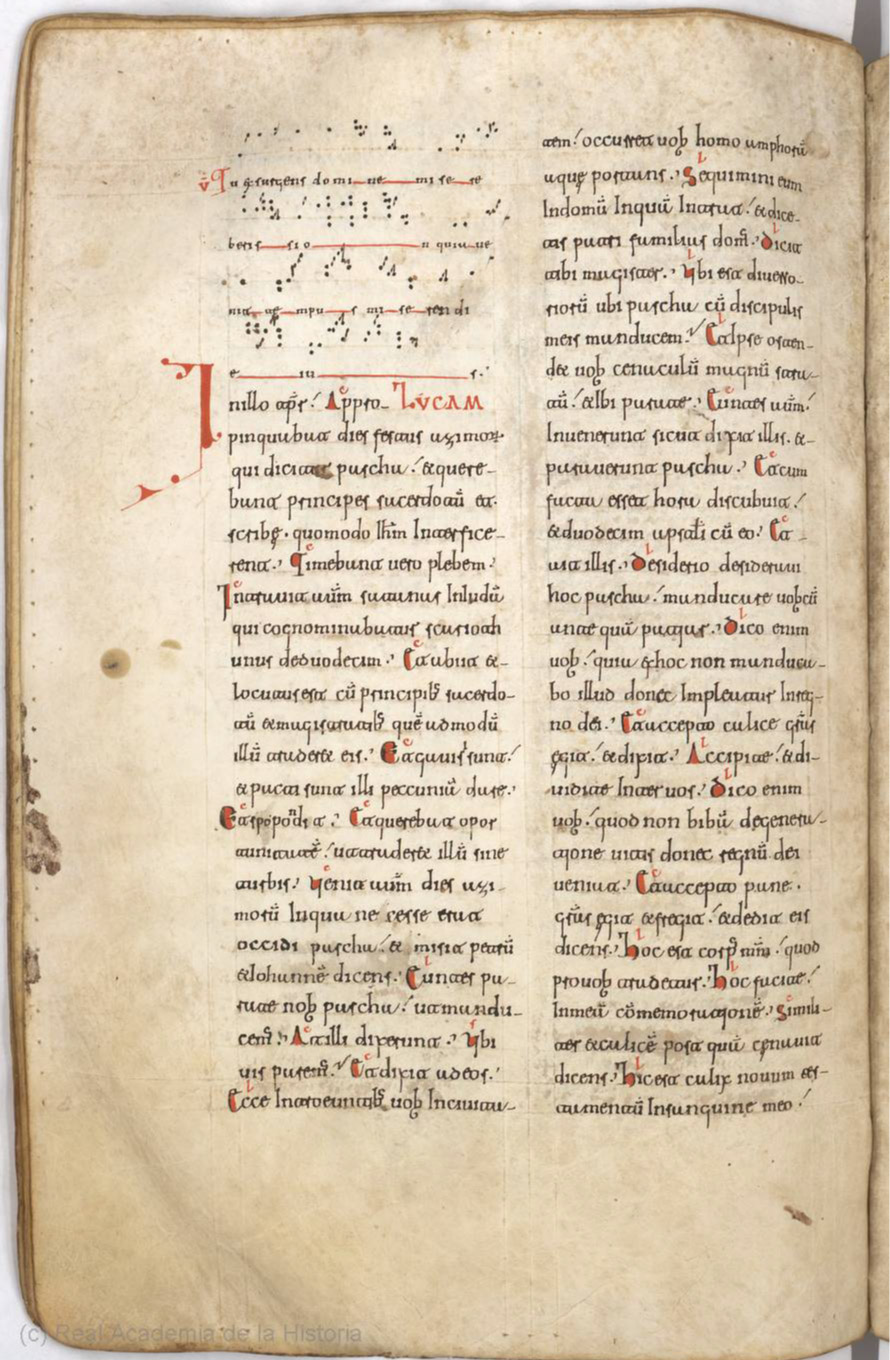 Tu exsurgens domine misere
beris sio n quia ue
nit tempus miserendi
e iu s.
In illo tempr̄. Appro LUCAM
pinquabat dies festus azimor
qui dicitur pascha. et quere
bant principes sacerdotū et
scribę. quomodo Ihm̄ Interfice
rent. Timebant uero plebem.
Intrauit aūm satanas In Iudā
qui cognominabatur scarioth
unus deduodecim. Et abiit et
locutus est cū principib; sacerdo
tū et magistratib; quē admodū
illū traderet eis. Et gauisi sunt.
et pacti sunt illi peccuniā dare.
Et spopondit. Et querebat opor
tunitatē. ut traderet illū sine
turbis. Uenit aūm dies azi
morū In qua necesse erat
occidi pascha. et misit petrū
et Iohannē dicens. Euntes pa
rate nob̄ pascha. ut mandu
cem̄. At illi dixerunt. Ubi
uis parem̄. Et dixit ad eos.
Ecce Introeuntib; uob̄ In ciuita
tem. occurret uob̄ homo amphorā
aquę portans. Sequimini eum
In domū In quā Intrat. et dice
tis patri familias dom̄. Dicit
tibi magister. Ubi est diuerso
riorū ubi pascha cū discipulis
meis manducem. Et Ipse osten
det uob̄ cenaculū magnū stra
tū. et Ibi parate. Euntes aūm.
Inuenerunt sicut dixit illis. et
parauerunt pascha. Et cum
facta esset hora discubuit.
et duodecim apsāli cū eo. Et
ait illis. Desiderio desideraui
hoc pascha. manducare uobcū
ante quā patiar. Dico enim
uob̄. quia ex hoc non mandūca
bo illud donec Impleatur In reg
no dei. Et accepto calice grās
egit. et dixit. Accipite. et di
uidite Inter uos. Dico enim
uob̄. quod non bibā degenera
tione uitis donec regnū dei
ueniat. Et accepto pane.
grās egit et fregit. et dedit eis
dicens. Hoc est corp̄ m̄m. quod
pro uob̄ tradetur. Hoc facite.
In meā cōmemorationē. Simili
ter et calicē post quā cenauit
dicens. Hic est calix nouum tes
tamentū In sanguine meo.
(c) Real Academia de la Historia